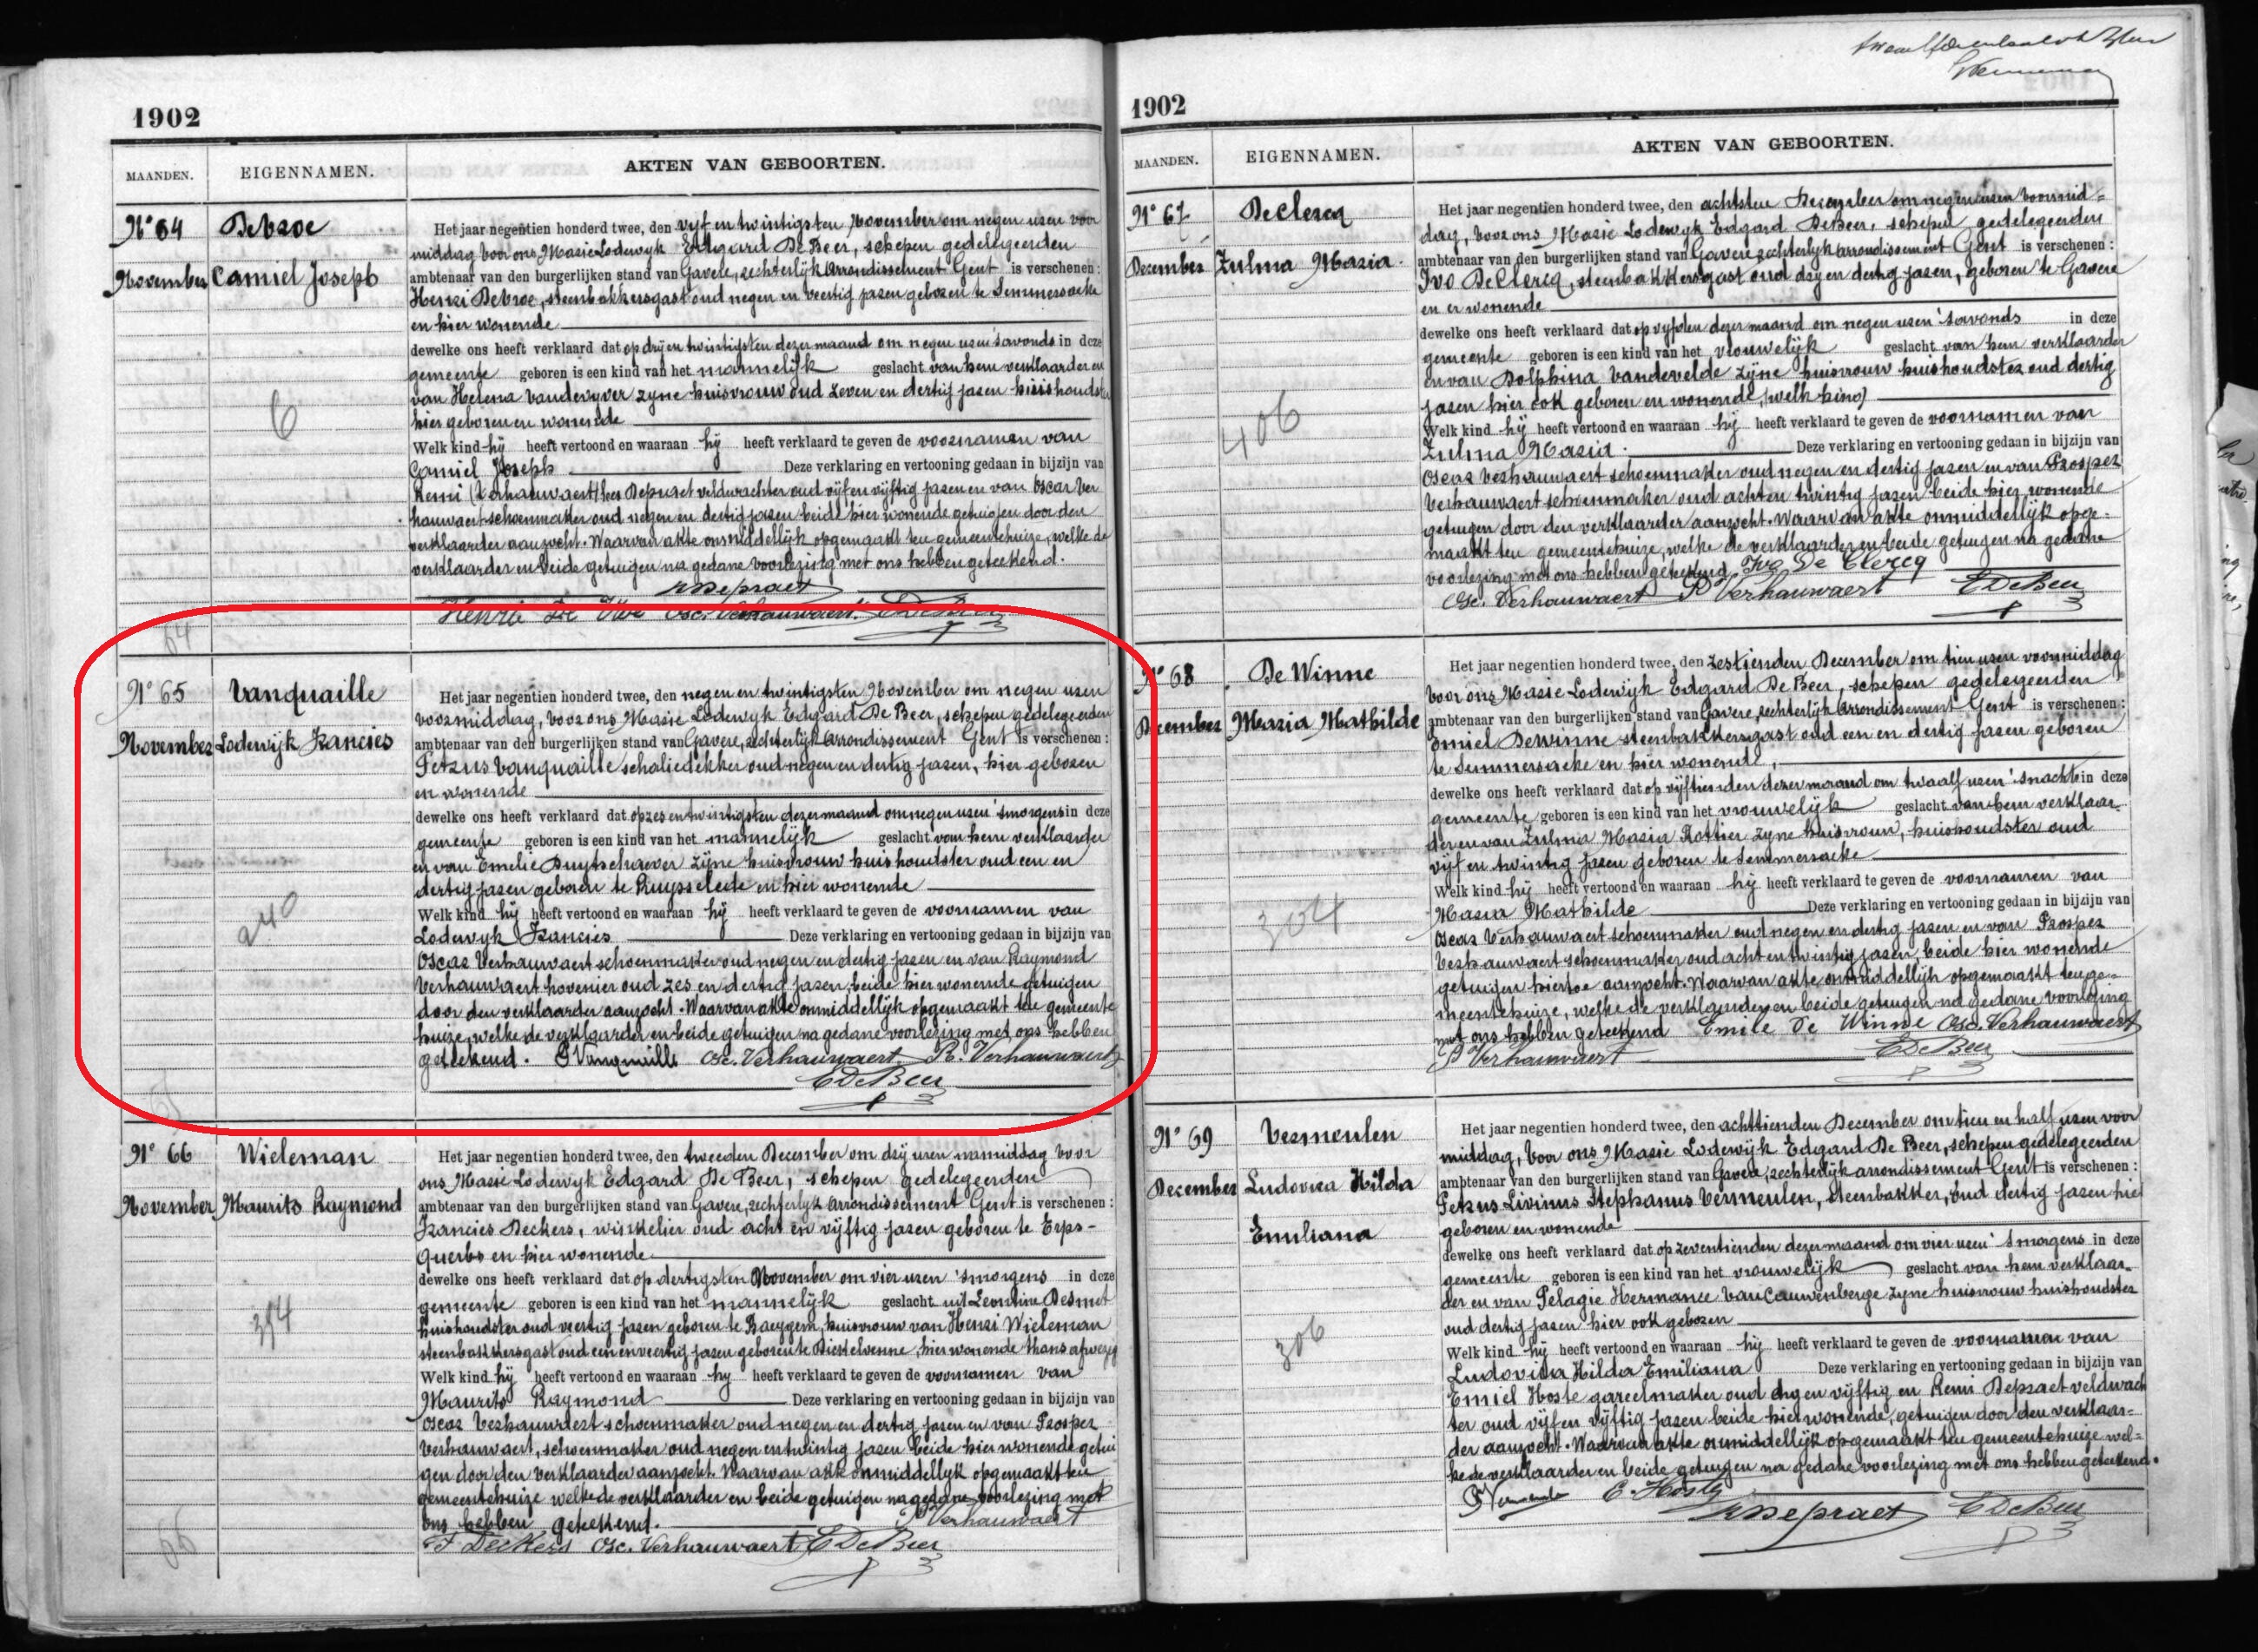 1902
MAANDEN. EIGENNAMEN. AKTEN VAN GEBOORTEN.
N° 64 Debroe
November Camiel Joseph
Het jaar negentien honderd twee, den vyf en twintigsten November om negen uren voor
middag voor ons Marie Lodewyk Edgard De Beer, schepen gedelegeerden
ambtenaar van den burgerlijken stand van Gavere, rechterlyk Arrondissement Gent is verschenen :
Henri Debroe, steenbakkersgast oud negen en veertig jaren geboren te Semmersaeke
en hier wonende
dewelke ons heeft verklaard dat op dry en twintigsten dezer maand om negen uren 'savonds in deze
gemeente geboren is een kind van het mannelyk geslacht van hem verklaarder en
van Helena Vandevyver zyne huisvrouw oud zeven en dertig jaren huishoudster
hier geboren en wonende
6
Welk kind hy heeft vertoond en waaraan hy heeft verklaard te geven de voornamen van
Camiel Joseph Deze verklaring en vertooning gedaan in bijzijn van
Remi (Verhauwaert) lees Depraet veldwachter oud vyf en vyftig jaren en van Oscar Ver
hauwaert schoenmaker oud negen en dertig jaren beide hier wonende getuigen door den
verklaarder aanzocht. Waarvan akte onmiddellyk opgemaakt ten gemeentehuize, welke de
verklaarder en beide getuigen na gedane voorlezing met ons hebben geteekend.
R Depraet
Henri De Vroe Osc. Verhauwaert E De Beer
64
N° 65 Vanquaille
November Lodewyk Francies
Het jaar negentien honderd twee, den negen en twintigsten November om negen uren
voormiddag, voor ons Marie Lodewyk Edgard De Beer, schepen gedelegeerden
ambtenaar van den burgerlijken stand van Gavere, rechterlyk Arrondissement Gent is verschenen :
Petrus Vanquaille schaliedekker oud negen en dertig jaren, hier geboren
en wonende
dewelke ons heeft verklaard dat op zes en twintigsten dezer maand om negen uren 'smorgens in deze
gemeente geboren is een kind van het mannelyk geslacht van hem verklaarder
en van Emelie Buytschaever zyne huisvrouw huishoudster oud een en
dertig jaren geboren te Ruysselede en hier wonende
240
Welk kind hy heeft vertoond en waaraan hy heeft verklaard te geven de voornamen van
Lodewyk Francies Deze verklaring en vertooning gedaan in bijzijn van
Oscar Verhauwaert schoenmaker oud negen en dertig jaren en van Raymond
Verhauwaert hovenier oud zes en dertig jaren, beide hier wonende getuigen
door den verklaarder aanzocht. Waarvan akte onmiddellyk opgemaakt ten gemeente
huize, welke de verklaarder en beide getuigen na gedane voorlezing met ons hebben
geteekend. P Vanquaille Osc. Verhauwaert R. Verhauwaert
E De Beer
65
N° 66 Wieleman
November Maurits Raymond
Het jaar negentien honderd twee, den tweeden December om dry uren namiddag voor
ons Marie Lodewyk Edgard De Beer, schepen gedelegeerden
ambtenaar van den burgerlijken stand van Gavere, rechterlyk Arrondissement Gent is verschenen :
Francies Deckers, winkelier oud acht en vyftig jaren geboren te Erps-
Querbs en hier wonende
dewelke ons heeft verklaard dat op dertigsten November om vier uren 'smorgens in deze
gemeente geboren is een kind van het mannelyk geslacht uit Leontine Desmet
huishoudster oud veertig jaren geboren te Baeygem, huisvrouw van Henri Wieleman
steenbakkersgast oud een en veertig jaren geboren te Dickelvenne, hier wonende thans afwezig
354
Welk kind hy heeft vertoond en waaraan hy heeft verklaard te geven de voornamen van
Maurits Raymond Deze verklaring en vertooning gedaan in bijzijn van
Oscar Verhauwaert schoenmaker oud negen en dertig jaren en van Prosper
Verhauwaert, schoenmaker oud negen en twintig jaren beide hier wonende getui
gen door den verklaarder aanzocht. Waarvan akte onmiddellyk opgemaakt ten
gemeentehuize welke de verklaarder en beide getuigen na gedane voorlezing met
ons hebben geteekend. P Verhauwaert
F Deckers Osc. Verhauwaert E De Beer
66
1902
MAANDEN. EIGENNAMEN. AKTEN VAN GEBOORTEN.
N° 67 De Clercq
December Zulma Maria.
Het jaar negentien honderd twee, den achtsten December om negen uren voormid-
dag, voor ons Marie Lodewyk Edgard De Beer, schepen gedelegeerden
ambtenaar van den burgerlijken stand van Gavere rechterlyk arrondissement Gent is verschenen :
Ivo De Clercq, steenbakkersgast oud dry en dertig jaren, geboren te Gavere
en er wonende
dewelke ons heeft verklaard dat op vyfden dezer maand om negen uren 'savonds in deze
gemeente geboren is een kind van het vrouwelyk geslacht van hem verklaarder
en van Dolphina Vandevelde zyne huisvrouw huishoudster oud dertig
jaren hier ook geboren en wonende, (welk kind)
406
Welk kind hy heeft vertoond en waaraan hy heeft verklaard te geven de voornamen van
Zulma Maria. Deze verklaring en vertooning gedaan in bijzijn van
Oscar Verhauwaert schoenmaker oud negen en dertig jaren en van Prosper
Verhauwaert schoenmaker oud acht en twintig jaren beide hier wonende
getuigen door den verklaarder aanzocht. Waarvan akte onmiddellyk opge-
maakt ten gemeentehuize, welke de verklaarder en beide getuigen na gedane
voorlezing met ons hebben geteekend. Ivo De Clercq
Osc. Verhauwaert P Verhauwaert E De Beer
N° 68 De Winne
December Maria Mathilde
Het jaar negentien honderd twee, den zestienden December om tien uren voormiddag
voor ons Marie Lodewyk Edgard De Beer, schepen gedelegeerden
ambtenaar van den burgerlijken stand van Gavere, rechterlyk Arrondissement Gent is verschenen :
Emiel Dewinne steenbakkersgast oud een en dertig jaren geboren
te Semmersaeke en hier wonende,
dewelke ons heeft verklaard dat op vyftienden dezer maand om twaalf uren 'snachts in deze
gemeente geboren is een kind van het vrouwelyk geslacht van hem verklaar-
der en van Zulma Maria Rottier zyne huisvrouw, huishoudster oud
vyf en twintig jaren geboren te Semmersaeke
304
Welk kind hy heeft vertoond en waaraan hy heeft verklaard te geven de voornamen van
Maria Mathilde Deze verklaring en vertooning gedaan in bijzijn van
Oscar Verhauwaert schoenmaker oud negen en dertig jaren en van Prosper
Verhauwaert schoenmaker oud acht en twintig jaren, beide hier wonende
getuigen hiertoe aanzocht. Waarvan akte onmiddellyk opgemaakt ten ge-
meentehuize, welke de verklaarder en beide getuigen na gedane voorlezing
met ons hebben geteekend Emile De Winne Osc. Verhauwaert
P Verhauwaert E De Beer
N° 69 Vermeulen
December Ludovica Hilda
Emiliana
Het jaar negentien honderd twee, den achttienden December om tien en half uren voor
middag, voor ons Marie Lodewyk Edgard De Beer, schepen gedelegeerden
ambtenaar van den burgerlijken stand van Gavere, rechterlyk arrondissement Gent is verschenen :
Petrus Livinus Stephanus Vermeulen, steenbakker, oud dertig jaren hier
geboren en wonende
dewelke ons heeft verklaard dat op zeventienden dezer maand om vier uren 'smorgens in deze
gemeente geboren is een kind van het vrouwelyk geslacht van hem verklaar-
der en van Pelagie Hermance Vancauwenberge zyne huisvrouw huishoudster
oud dertig jaren hier ook geboren
306
Welk kind hy heeft vertoond en waaraan hy heeft verklaard te geven de voornamen van
Ludovica Hilda Emiliana Deze verklaring en vertooning gedaan in bijzijn van
Emiel Hoste gareelmaker oud dry en vyftig en Remi Depraet veldwach
ter oud vyf en vyftig jaren beide hier wonende, getuigen door den verklaar-
der aanzocht. Waarvan akte onmiddellyk opgemaakt ten gemeentehuize wel-
ke de verklaarder en beide getuigen na gedane voorlezing met ons hebben geteekend.
P Vermeulen E. Hoste
R Depraet E De Beer